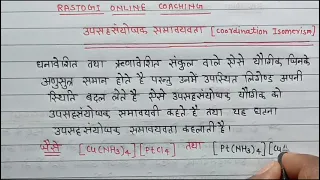 RASTOGI ONLINE COACHING
उपसहसंयोजक समावयवता [Coordination Isomerism]
धनावेशित तथा ऋणावेशित संकुल वाले ऐसे यौगिक जिनके
अणुसूत्र समान होते है परन्तु उनमे उपस्थित लिगेण्ड अपनी
स्थिति बदल लेते है ऐसे उपसहसंयोजक यौगिक को
उपसहसंयोजक समावयवी कहते है तथा यह घटना
उपसहसंयोजक समावयवता कहलाती है।
जैसे [Cu(NH3)4] [PtCl4] तथा [Pt(NH3)4] [Cu